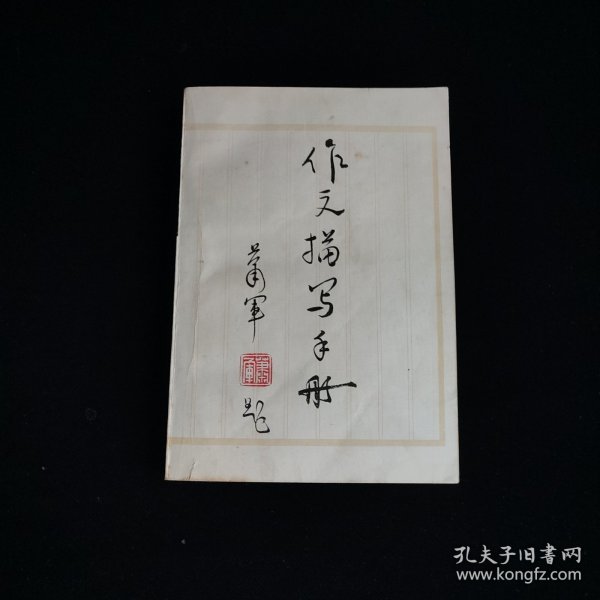 作文描写手册
萧軍
萧軍
题
孔夫子旧書网
www.kongfz.com